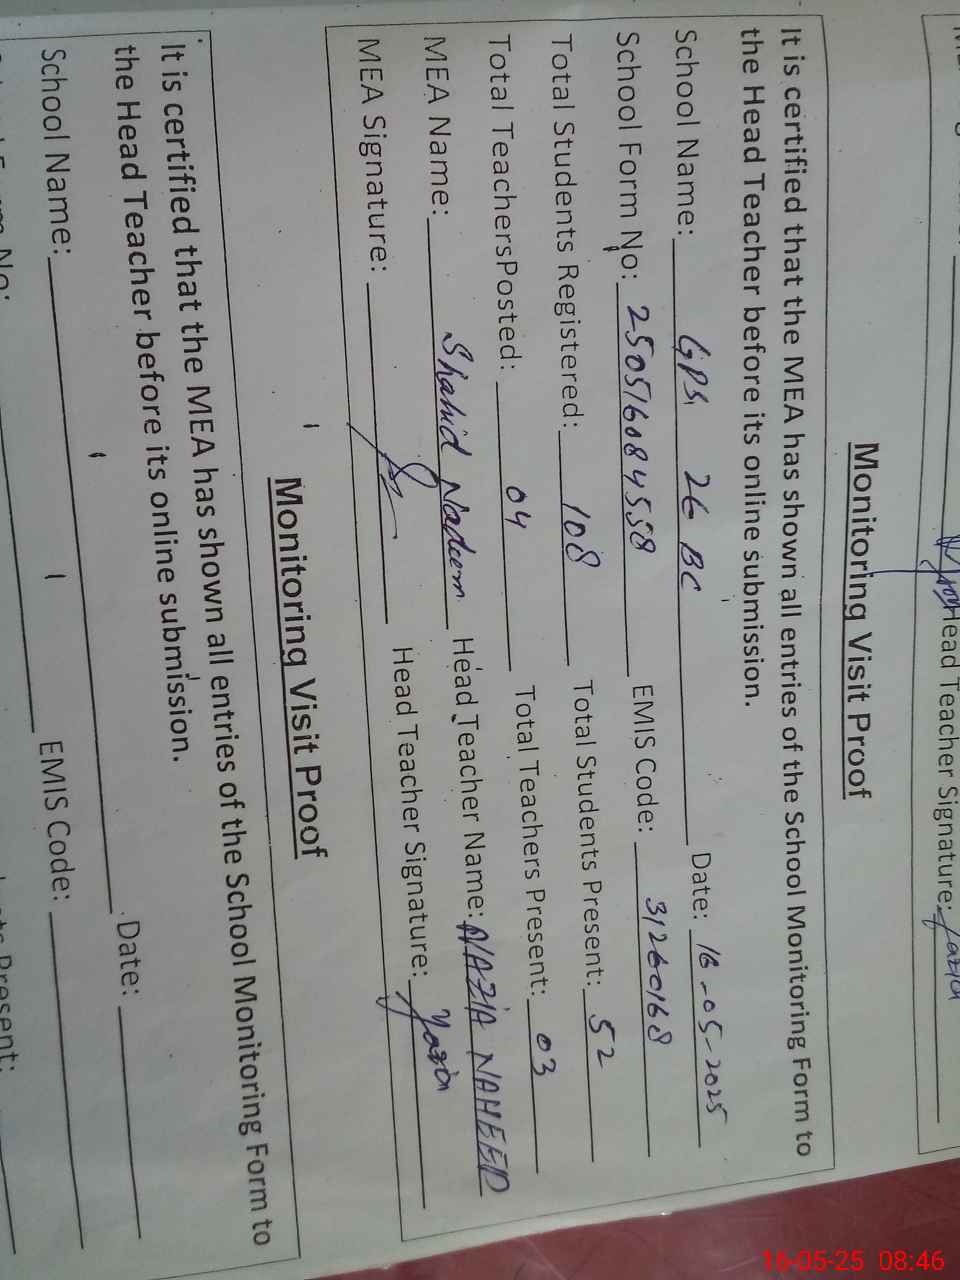 Head Teacher Signature:
Monitoring Visit Proof
It is certified that the MEA has shown all entries of the School Monitoring Form to
the Head Teacher before its online submission.
School Name: GPS, 26 BC Date: 16-05-2025
School Form No: 25051608455 8 EMIS Code: 31260168
Total Students Registered: 108 Total Students Present: 52
Total TeachersPosted: 04 Total Teachers Present: 03
MEA Name: Shahid Nadeem Head Teacher Name: NAZIA NAHEED
MEA Signature: Head Teacher Signature:
Monitoring Visit Proof
It is certified that the MEA has shown all entries of the School Monitoring Form to
the Head Teacher before its online submission.
School Name: Date:
EMIS Code:
Present:
16-05-25 08:46